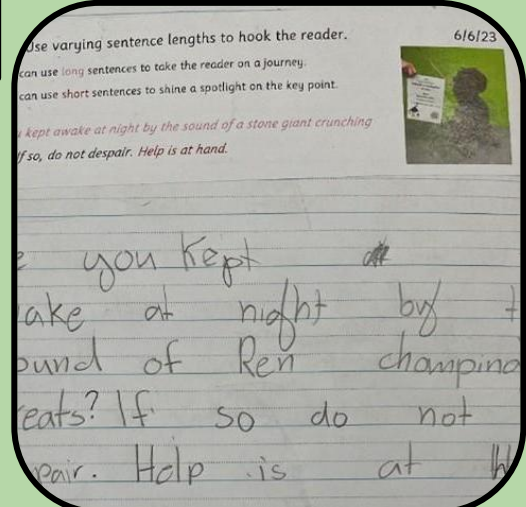 Use varying sentence lengths to hook the reader.
6/6/23
can use long sentences to take the reader on a journey.
can use short sentences to shine a spotlight on the key point.
kept awake at night by the sound of a stone giant crunching
If so, do not despair. Help is at hand.
you kept
ake at night by t
ound of Ren champing
eats? If so do not
pair. Help is at h